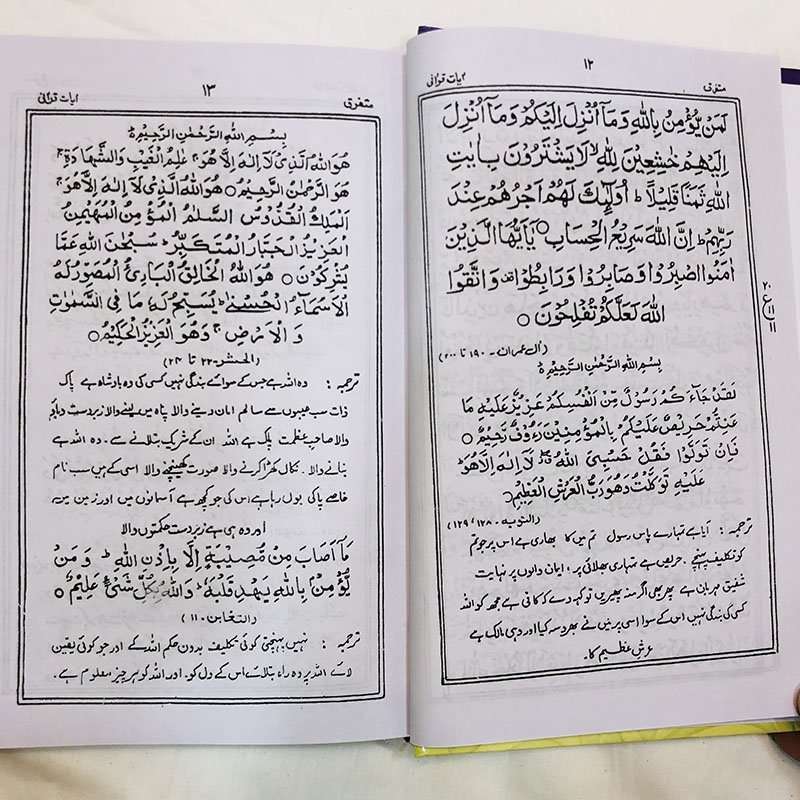 ۱۲
متفرق
آیات قرآنی
لَمَنْ يُّؤْمِنُ بِاللّٰهِ وَمَاۤ اُنْزِلَ اِلَيْكُمْ وَمَاۤ اُنْزِلَ
اِلَيْهِمْ خٰشِعِيْنَ لِلّٰهِ ۙ لَا يَشْتَرُوْنَ بِاٰيٰتِ
اللّٰهِ ثَمَنًا قَلِيْلًا ؕ اُولٰٓئِكَ لَهُمْ اَجْرُهُمْ عِنْدَ
رَبِّهِمْ ؕ اِنَّ اللّٰهَ سَرِيْعُ الْحِسَابِ ○ يٰۤاَيُّهَا الَّذِيْنَ
اٰمَنُوا اصْبِرُوْا وَصَابِرُوْا وَرَابِطُوْا ۫ وَاتَّقُوا
اللّٰهَ لَعَلَّكُمْ تُفْلِحُوْنَ ○
(اٰل عمران - ۱۹۰ تا ۲۰۰)
بِسْمِ اللّٰهِ الرَّحْمٰنِ الرَّحِيْمِ ○
لَقَدْ جَآءَ كُمْ رَسُوْلٌ مِّنْ اَنْفُسِكُمْ عَزِيْزٌ عَلَيْهِ مَا
عَنِتُّمْ حَرِيْصٌ عَلَيْكُمْ بِالْمُؤْمِنِيْنَ رَءُوْفٌ رَّحِيْمٌ ○
فَاِنْ تَوَلَّوْا فَقُلْ حَسْبِيَ اللّٰهُ ۖ لَاۤ اِلٰهَ اِلَّا هُوَ ؕ
عَلَيْهِ تَوَكَّلْتُ وَهُوَ رَبُّ الْعَرْشِ الْعَظِيْمِ ○
(التوبہ - ۱۲۸، ۱۲۹)
ترجمہ : آیا ہے تمہارے پاس رسول تم میں کا بھاری ہے اس پر جو تم
کو تکلیف پہنچے۔ حریص ہے تمہاری بھلائی پر، ایمان والوں پر نہایت
شفیق مہربان ہے پھر بھی اگر منہ پھیریں تو کہہ دے کہ کافی ہے مجھ کو اللہ
کسی کی بندگی نہیں اس کے سوا اسی پر میں نے بھروسہ کیا اور وہی مالک ہے
عرشِ عظیم کا۔
۲۰
ع
۱۱
۱۱
۱۳
متفرق
آیات قرآنی
بِسْمِ اللّٰهِ الرَّحْمٰنِ الرَّحِيْمِ ○
هُوَ اللّٰهُ الَّذِيْ لَاۤ اِلٰهَ اِلَّا هُوَ ۚ عٰلِمُ الْغَيْبِ وَالشَّهَادَةِ ۚ
هُوَ الرَّحْمٰنُ الرَّحِيْمُ ○ هُوَ اللّٰهُ الَّذِيْ لَاۤ اِلٰهَ اِلَّا هُوَ ۚ
اَلْمَلِكُ الْقُدُّوْسُ السَّلٰمُ الْمُؤْمِنُ الْمُهَيْمِنُ
الْعَزِيْزُ الْجَبَّارُ الْمُتَكَبِّرُ ؕ سُبْحٰنَ اللّٰهِ عَمَّا
يُشْرِكُوْنَ ○ هُوَ اللّٰهُ الْخَالِقُ الْبَارِئُ الْمُصَوِّرُ لَهُ
الْاَسْمَآءُ الْحُسْنٰى ؕ يُسَبِّحُ لَهٗ مَا فِي السَّمٰوٰتِ
وَالْاَرْضِ ۚ وَهُوَ الْعَزِيْزُ الْحَكِيْمُ ○
(الحشر - ۲۲ تا ۲۴)
ترجمہ : وہ اللہ ہے جس کے سوائے بندگی نہیں کسی کی وہ بادشاہ ہے پاک
ذات سب عیبوں سے سالم امان دینے والا پناہ میں لینے والا زبردست دباؤ
والا صاحبِ عظمت پاک ہے اللہ ان کے شریک بتلانے سے۔ وہ اللہ ہے
بنانے والا۔ نکال کھڑا کرنے والا صورت کھینچنے والا اسی کے ہیں سب نام
خاصے پاکی بول رہا ہے اس کی جو کچھ ہے آسمانوں میں اور زمین میں،
اور وہی ہے زبردست حکمتوں والا
مَاۤ اَصَابَ مِنْ مُّصِيْبَةٍ اِلَّا بِاِذْنِ اللّٰهِ ؕ وَمَنْ
يُّؤْمِنْۢ بِاللّٰهِ يَهْدِ قَلْبَهٗ ؕ وَاللّٰهُ بِكُلِّ شَيْءٍ عَلِيْمٌ ○
(التغابن - ۱۱)
ترجمہ : نہیں پہنچتی کوئی تکلیف بدون حکم اللہ کے اور جو کوئی یقین
لائے اللہ پر وہ راہ بتلائے اس کے دل کو۔ اور اللہ کو ہر چیز معلوم ہے۔